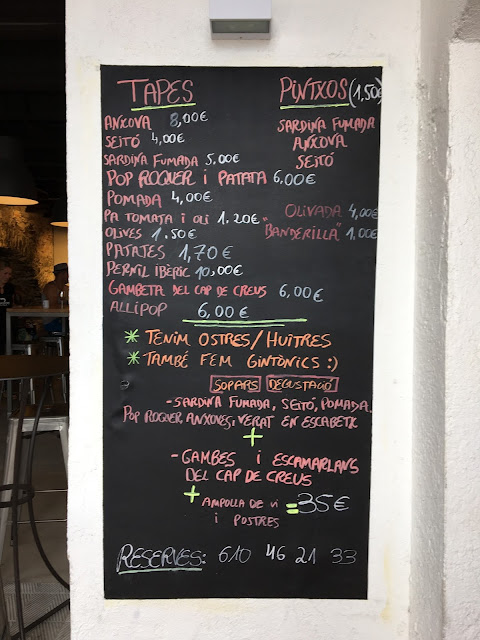 TAPES
ANXOVA 8,00€
SEITÓ 4,00€
SARDINA FUMADA 5,00€
POP ROQUER I PATATA 6,00€
POMADA 4,00€
PA TOMATA I OLI 1.20€
OLIVES 1.50€
PATATES 1,70€
PERNIL IBÈRIC 10,00€
GAMBETA DEL CAP DE CREUS 6,00€
ALLIPOP 6,00€
PINTXOS (1,50€
SARDINA FUMADA
ANXOVA
SEITÓ
OLIVADA 4,00€
"BANDERILLA" 1,00€
* TENIM OSTRES/HUITRES
* TAMBÉ FEM GINTÒNICS :)
SOPARS DEGUSTACIÓ
- SARDINA FUMADA, SEITÓ, POMADA.
POP ROQUER, ANXOVES, VERAT EN ESCABETX
+
- GAMBES i ESCAMARLANS
DEL CAP DE CREUS
+ AMPOLLA DE Vi = 35€
i POSTRES
RESERVES: 610 46 21 33